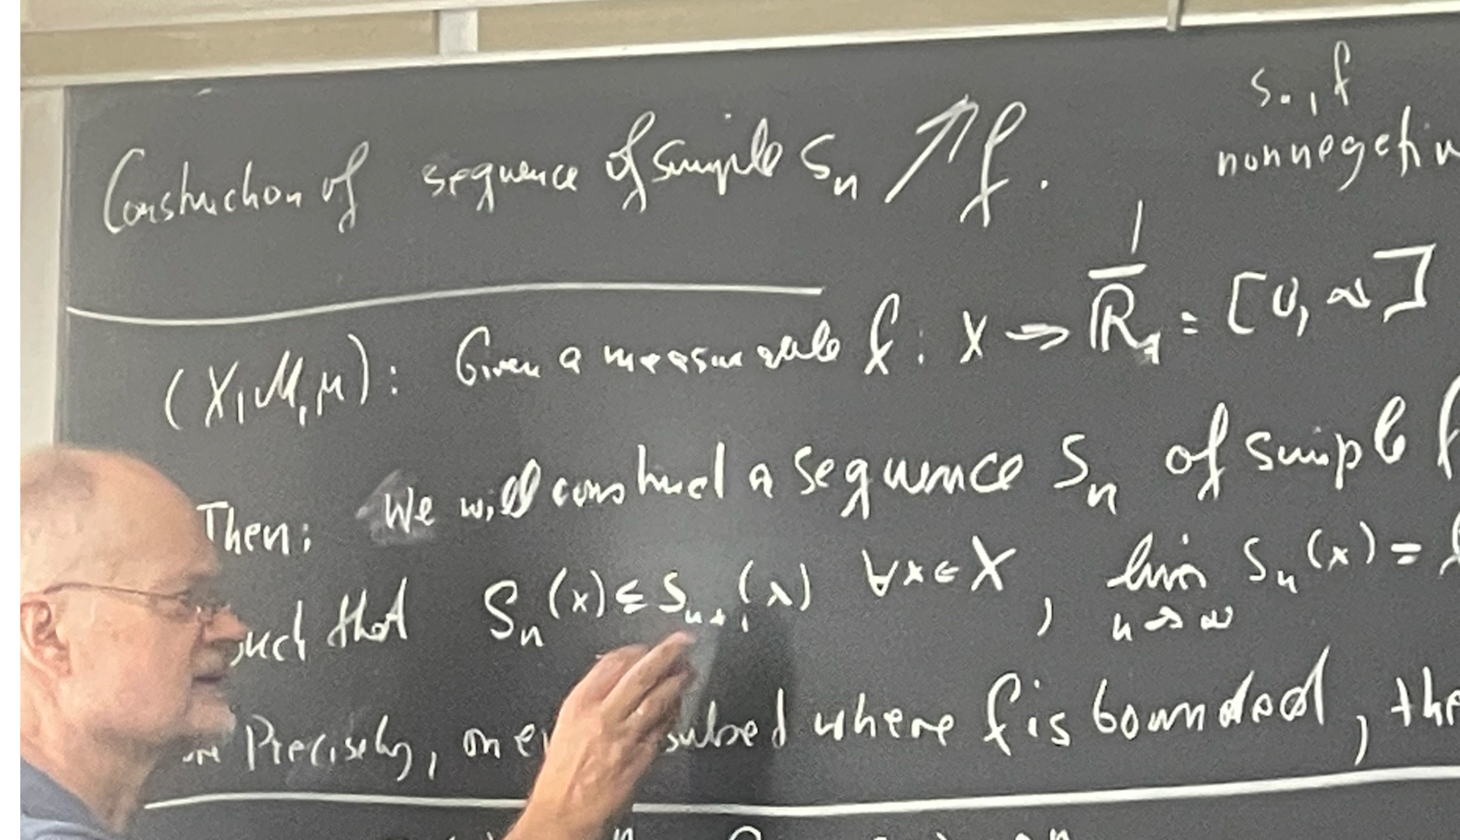 Construction of sequence of simple Sₙ ↗ f.
s., f
nonnegativ
(X, M, μ): Given a measurable f: X → R̅₊ = [0, ∞]
Then: We will construct a sequence Sₙ of simple f
such that Sₙ(x) ≤ Sₙ₊₁(x) ∀x∈X, lim n→∞ Sₙ(x) =
Precisely, on subset where f is bounded, the